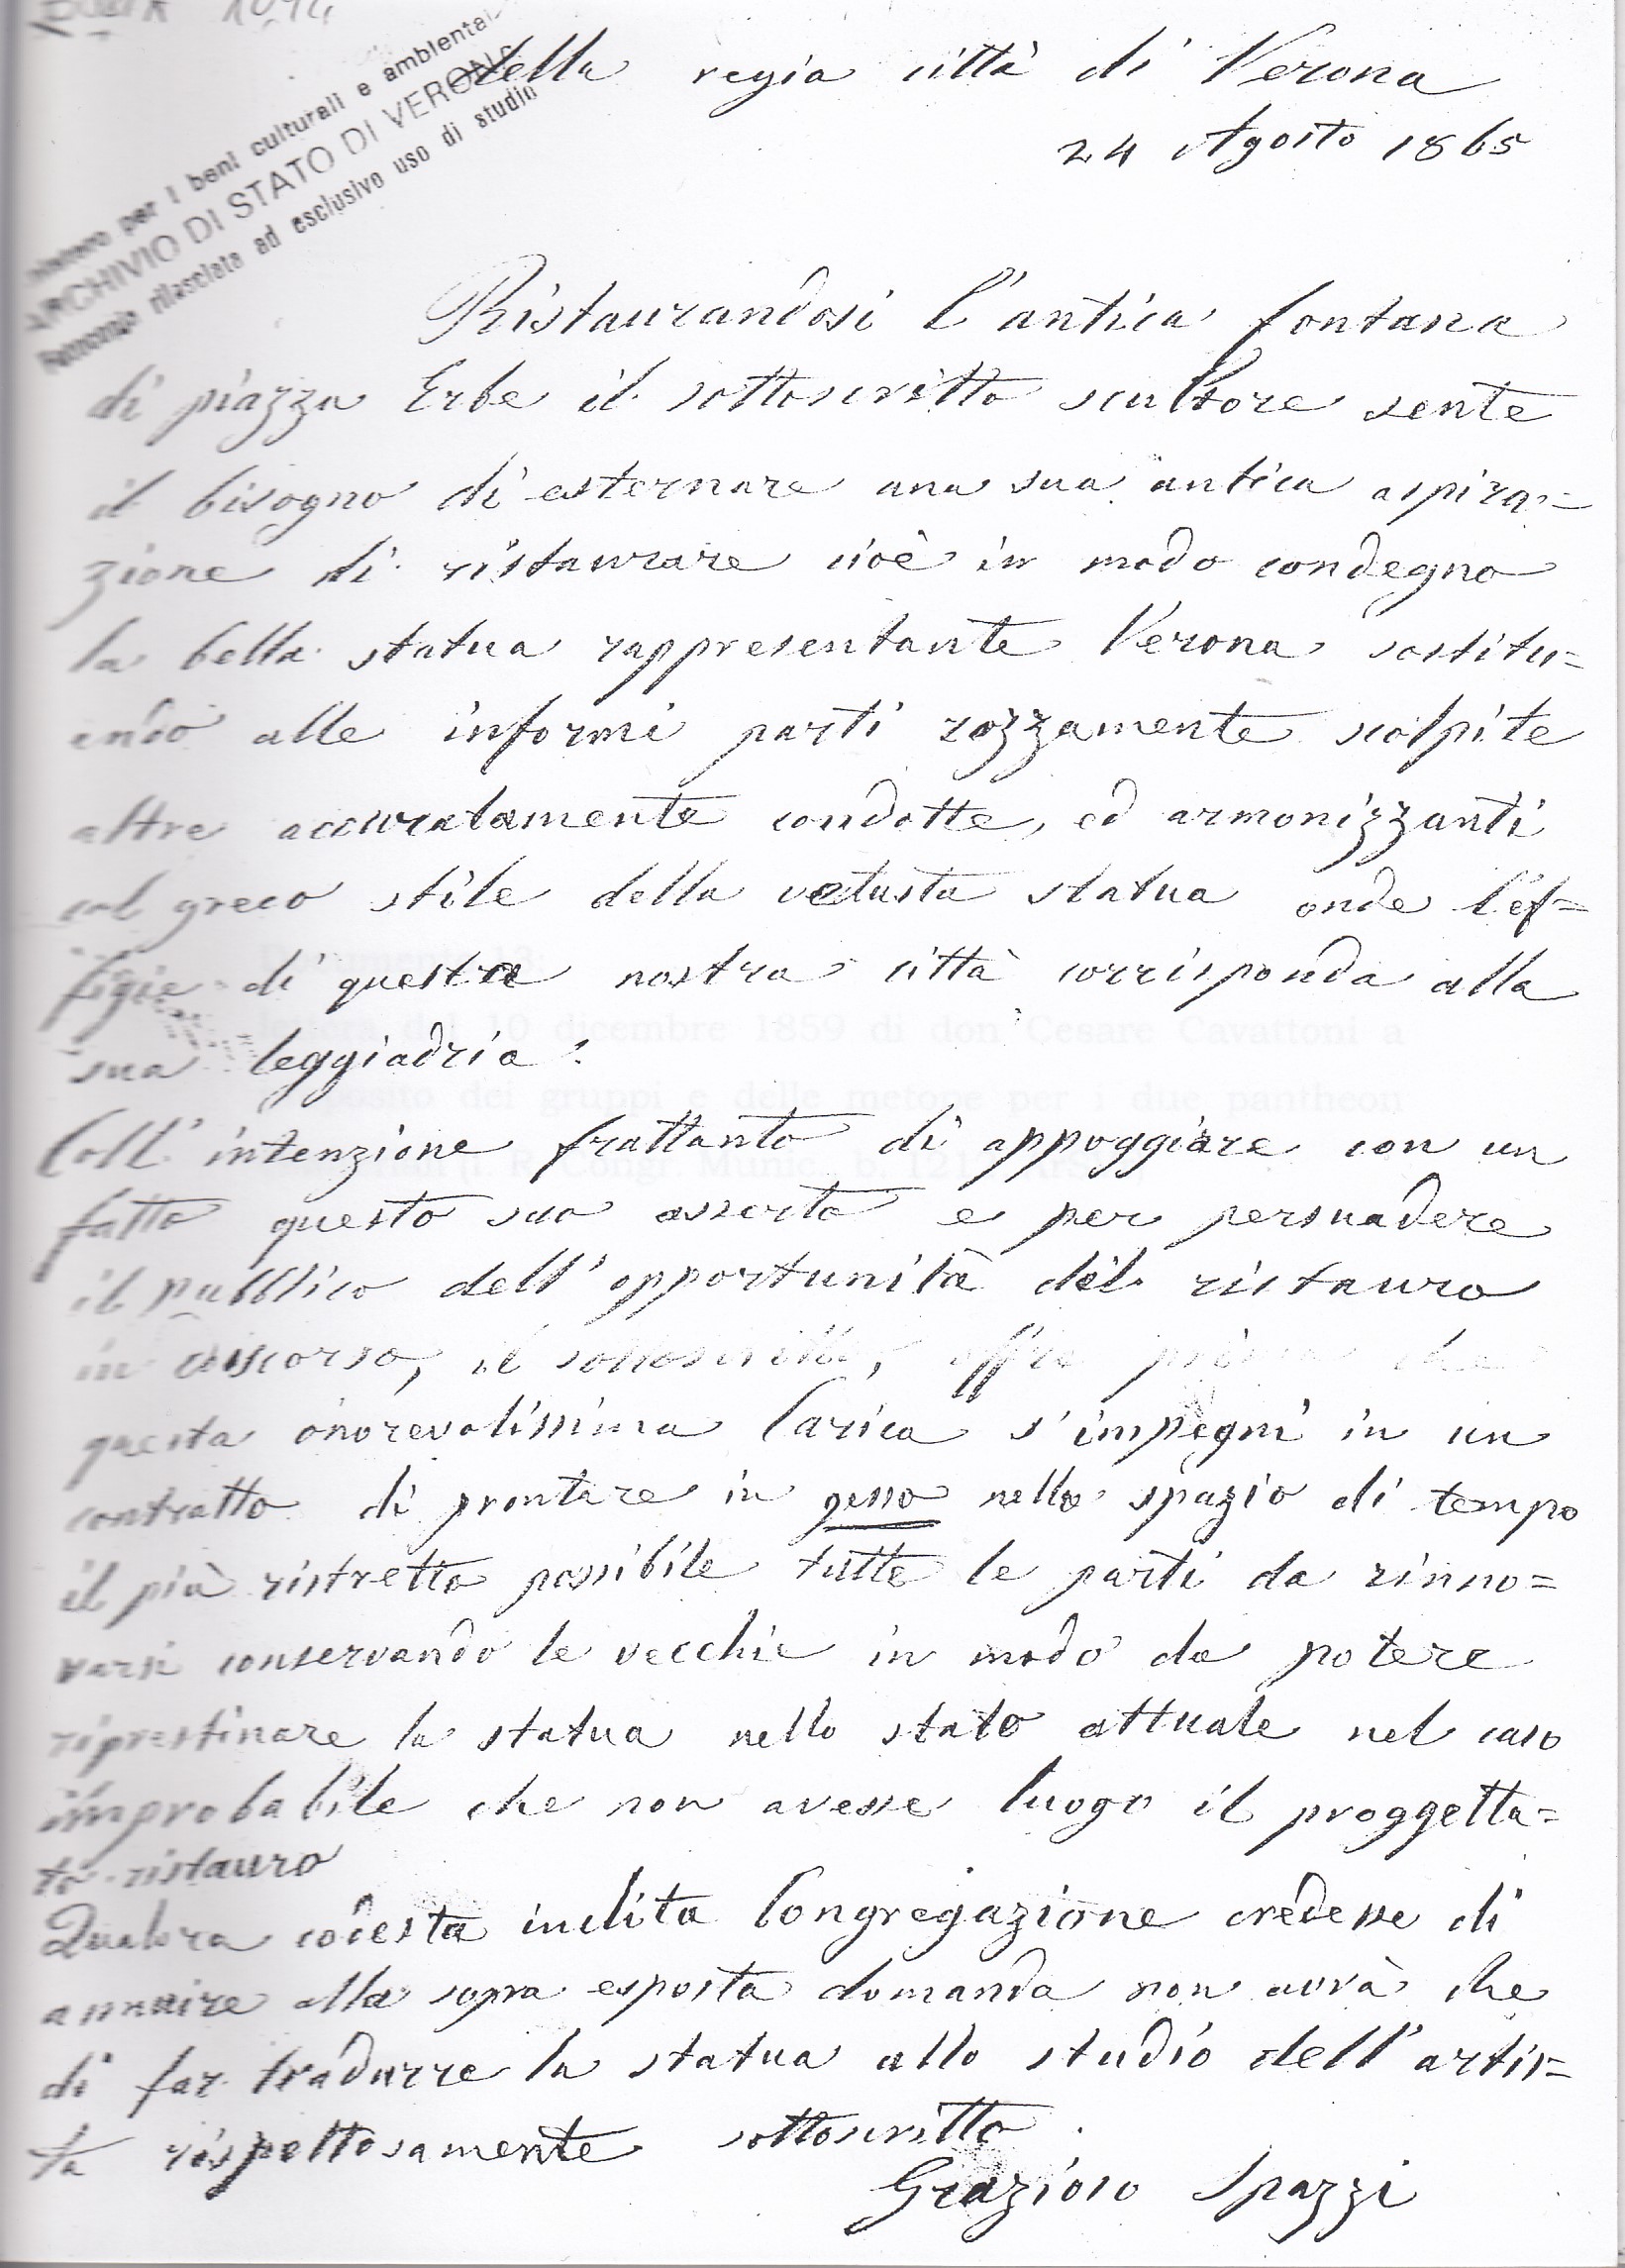 della regia città di Verona
24 Agosto 1865
per i beni culturali e ambientali
ARCHIVIO DI STATO DI VERONA
rilasciata ad esclusivo uso di studio
Ristaurandosi l'antica fontana
di piazza Erbe il sottoscritto scultore sente
il bisogno di esternare una sua antica aspira=
zione di ristaurare cioè in modo condegno
la bella statua rappresentante Verona sostitu=
endo alle informi parti rozzamente scolpite
altre accuratamente condotte, ed armonizzanti
col greco stile della vetusta statua onde l'ef=
figie di questa nostra città corrisponda alla
sua leggiadria:
Coll'intenzione frattanto di appoggiare con un
fatto questo suo asserto e per persuadere
il pubblico dell'opportunità del ristauro
in discorso, il sottoscritto, offre prima che
questa onorevolissima Carica s'impegni in un
contratto di prontare in gesso nello spazio di tempo
il più ristretto possibile tutte le parti da rinno=
varsi conservando le vecchie in modo da potere
ripristinare la statua nello stato attuale nel caso
improbabile che non avesse luogo il proggetta=
to ristauro
Qualora codesta inclita Congregazione credesse di
annuire alla sopra esposta domanda non avrà che
di far tradurre la statua allo studio dell'artis=
ta rispettosamente sottoscritto
Grazioso Spazzi